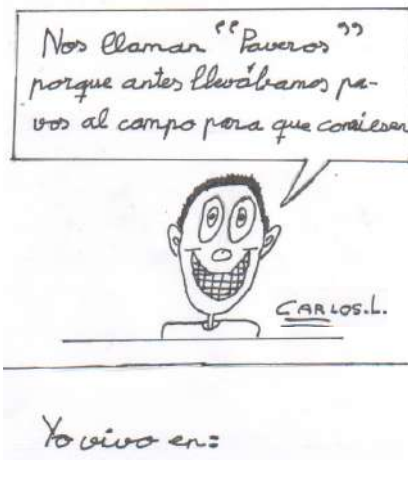 Nos llaman "Paveros"
porque antes llevábamos pa-
vos al campo para que comiesen
CARLOS.L.
Yo vivo en: